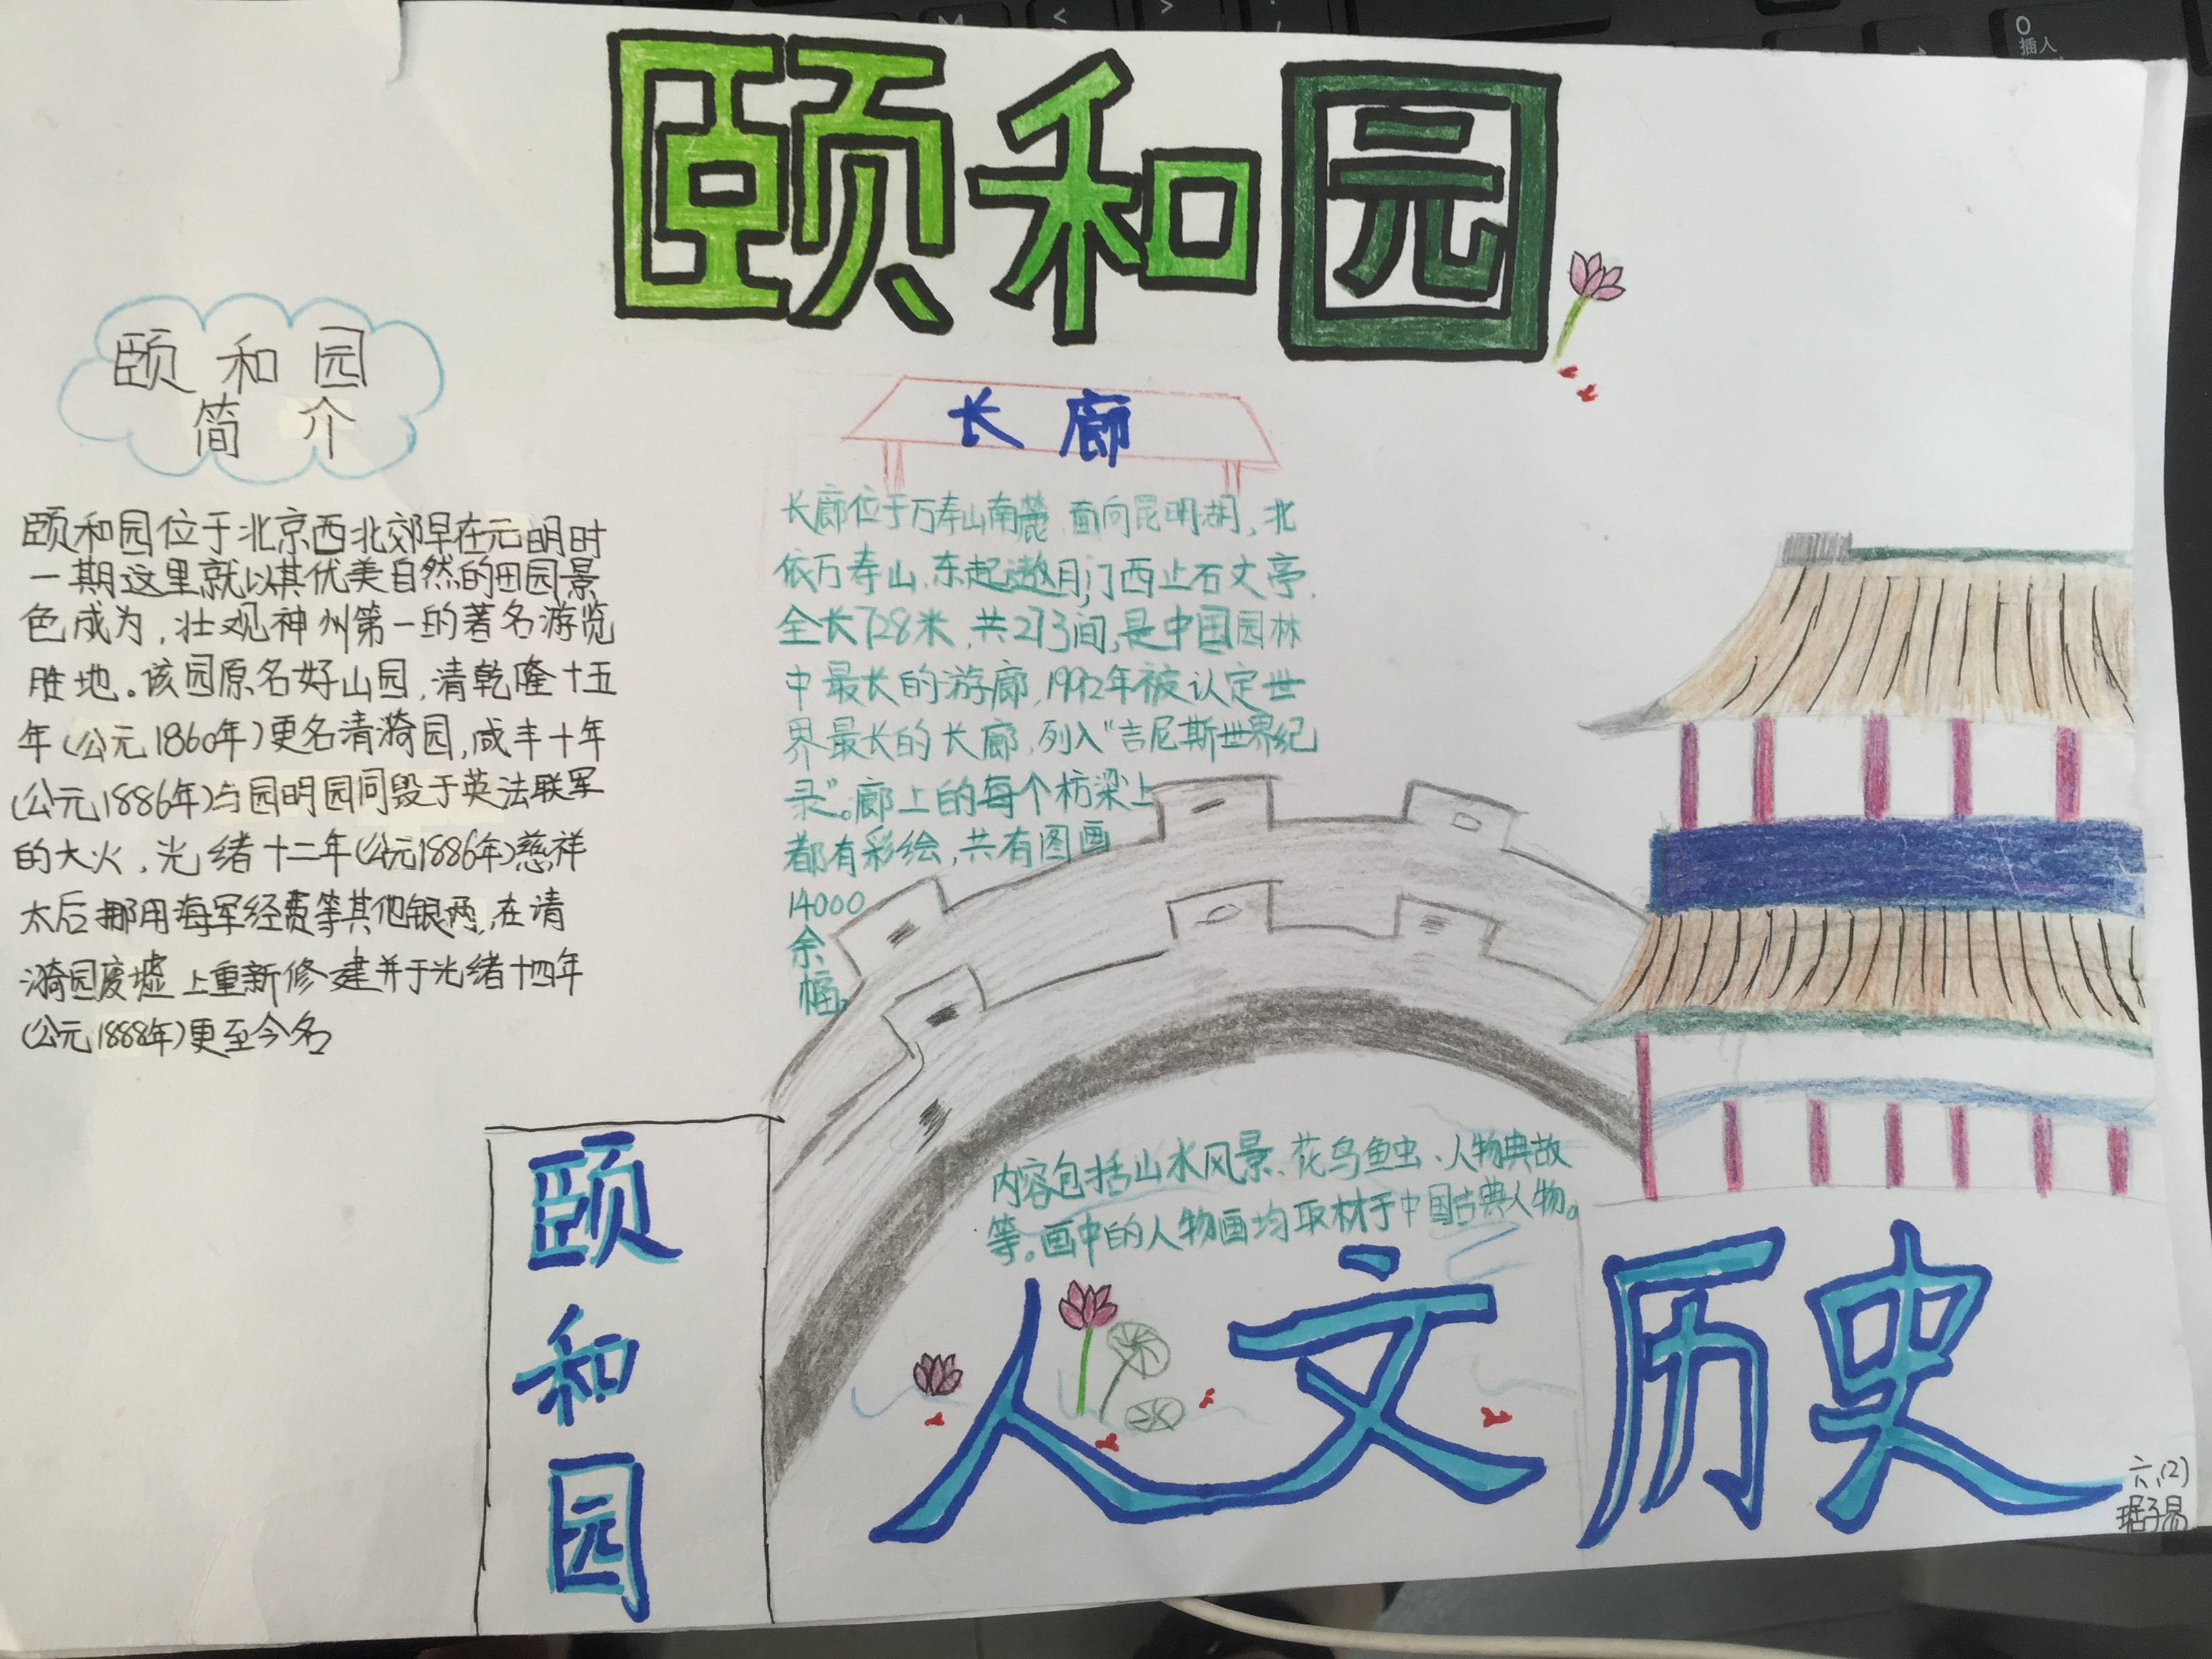 颐和园
颐和园
简介
颐和园位于北京西北郊早在元明时
一期这里就以其优美自然的田园景
色成为,壮观神州第一的著名游览
胜地。该园原名好山园,清乾隆十五
年(公元1860年)更名清漪园,咸丰十年
(公元1886年)与园明园同毁于英法联军
的大火,光绪十二年(公元1886年)慈祥
太后挪用海军经费等其他银两,在清
漪园废墟上重新修建并于光绪十四年
(公元1888年)更至今名
长廊
长廊位于万寿山南麓,面向昆明湖,北
依万寿山,东起邀月门西止石丈亭,
全长728米,共273间,是中国园林
中最长的游廊,1992年被认定世
界最长的长廊,列入“吉尼斯世界纪
录”。廊上的每个枋梁上
都有彩绘,共有图画
14000
余
幅,
内容包括山水风景、花鸟鱼虫、人物典故
等。画中的人物画均取材于中国古典人物。
颐
和
园
人文历史
六(2)
子易
插入